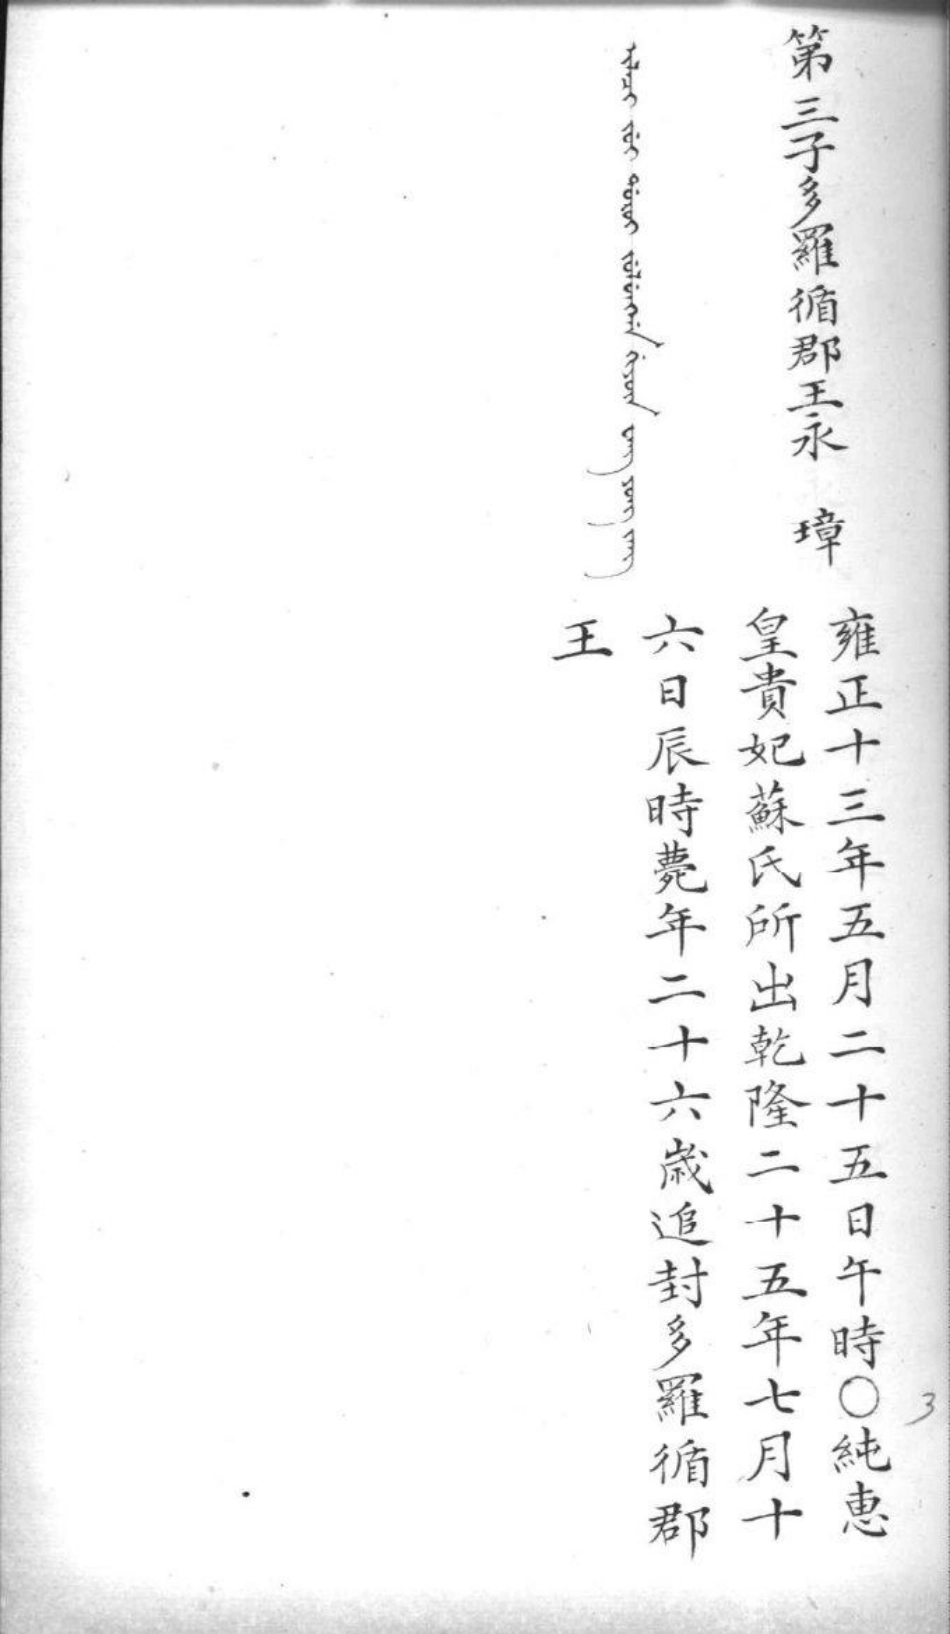 第三子多羅循郡王永 璋
雍正十三年五月二十五日午時〇純惠
皇貴妃蘇氏所出乾隆二十五年七月十
六日辰時薨年二十六歲追封多羅循郡
王
3